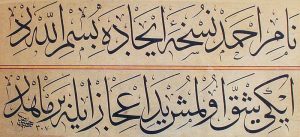 نام احمد نسخۀ ایجاده بسم الله در
ایکی شق اولمش ید اعجاز ایله بر ماهدر